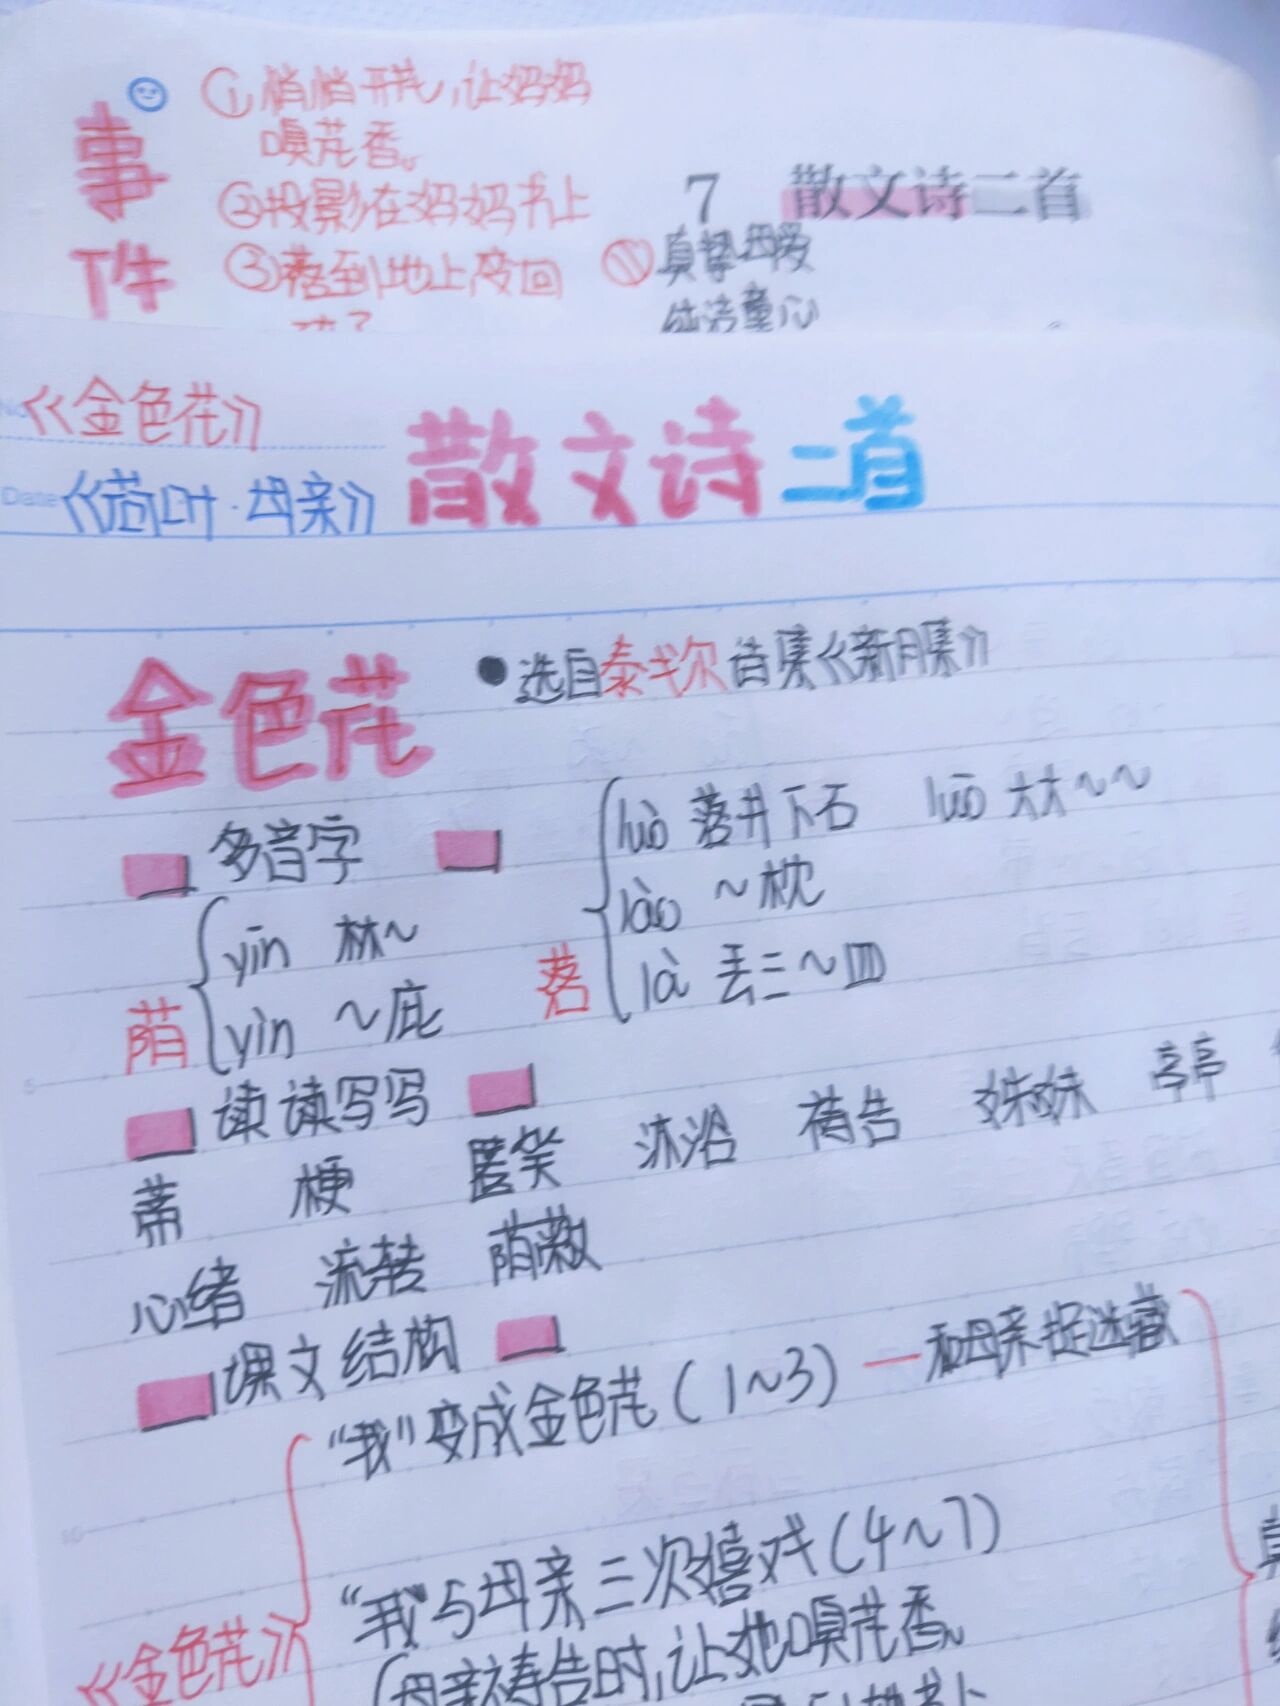 事件
①悄悄开花,让妈妈
嗅花香。
②投影在妈妈书上
③落到地上变回
孩子
7 散文诗二首
真挚母爱
纯洁童心
《金色花》
Date《荷叶·母亲》
散文诗二首
金色花
●选自泰戈尔诗集《新月集》
多音字
荫
yīn 林~
yìn ~庇
落
luò 落井下石 luō 大大~~
lào ~枕
là 丢三~四
读读写写
蒂 梗 匿笑 沐浴 祷告 姊妹 亭亭
心绪 流转 荫蔽
课文结构
《金色花》
“我”变成金色花(1~3)—和母亲捉迷藏
“我”与母亲三次嬉戏(4~7)
母亲祷告时,让她嗅花香